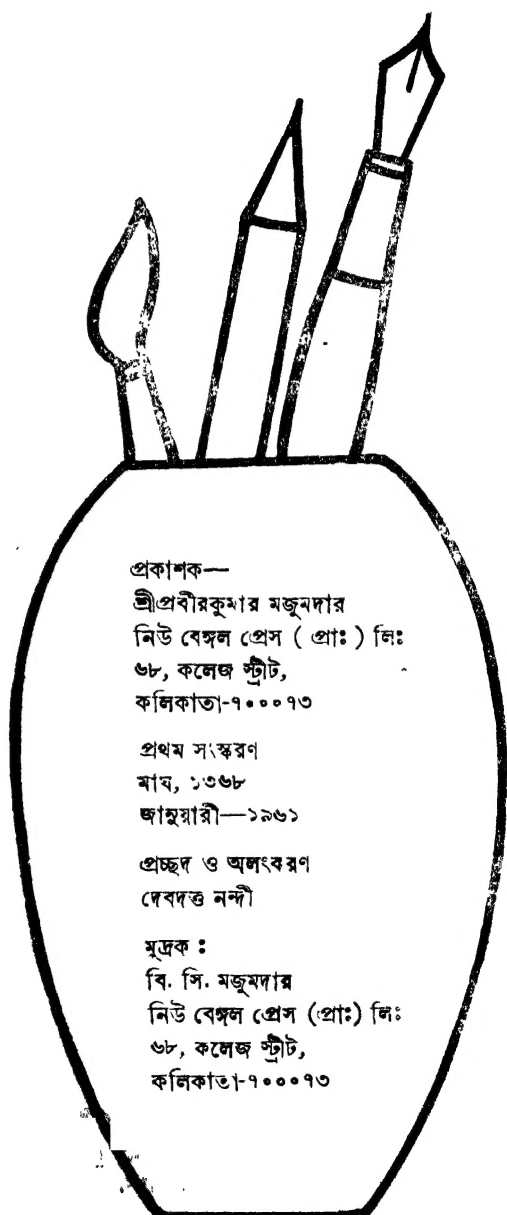 প্রকাশক—
শ্রীপ্রবীরকুমার মজুমদার
নিউ বেঙ্গল প্রেস ( প্রাঃ ) লিঃ
৬৮, কলেজ স্ট্রীট,
কলিকাতা-৭০০০৭৩
প্রথম সংস্করণ
মাঘ, ১৩৬৮
জানুয়ারী—১৯৬১
প্রচ্ছদ ও অলংকরণ
দেবদত্ত নন্দী
মুদ্রক :
বি. সি. মজুমদার
নিউ বেঙ্গল প্রেস (প্রাঃ) লিঃ
৬৮, কলেজ স্ট্রীট,
কলিকাতা-৭০০০৭৩